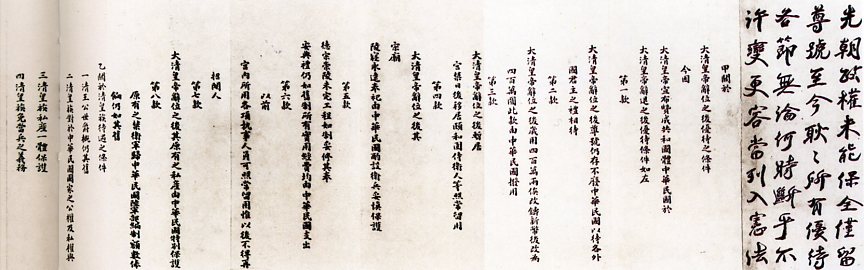 先朝政權未能保全僅留
尊號至今耿々所有優待
各節無論何時斷乎不
許變更容當列入憲法
甲關於
大清皇帝辭位之後優待之條件
今因
大清皇帝宣布贊成共和國體中華民國於
大清皇帝辭退之後優待條件如左
第一款
大清皇帝辭位之後尊號仍存不廢中華民國以待各外
國君主之禮相待
第二款
大清皇帝辭位之後歲用四百萬兩俟改鑄新幣後改為
四百萬圓此款由中華民國撥用
第三款
大清皇帝辭位之後暫居
宮禁日後移居頤和園侍衛人等照常留用
第四款
大清皇帝辭位之後其
宗廟
陵寢永遠奉祀由中華民國酌設衛兵妥慎保護
第五款
德宗崇陵未完工程如制妥修其奉
安典禮仍如舊制所有實用經費均由中華民國支出
第六款
以前
宮內所用各項執事人員可照常留用惟以後不得再
招閹人
第七款
大清皇帝辭位之後其原有之私產由中華民國特別保護
第八款
原有之禁衛軍歸中華民國陸軍部編制額數俸
餉仍如其舊
乙關於清皇族待遇之條件
一清王公世爵概仍其舊
二清皇族對於中華民國國家之公權及私權與
三清皇族私產一體保護
四清皇族免當兵之義務